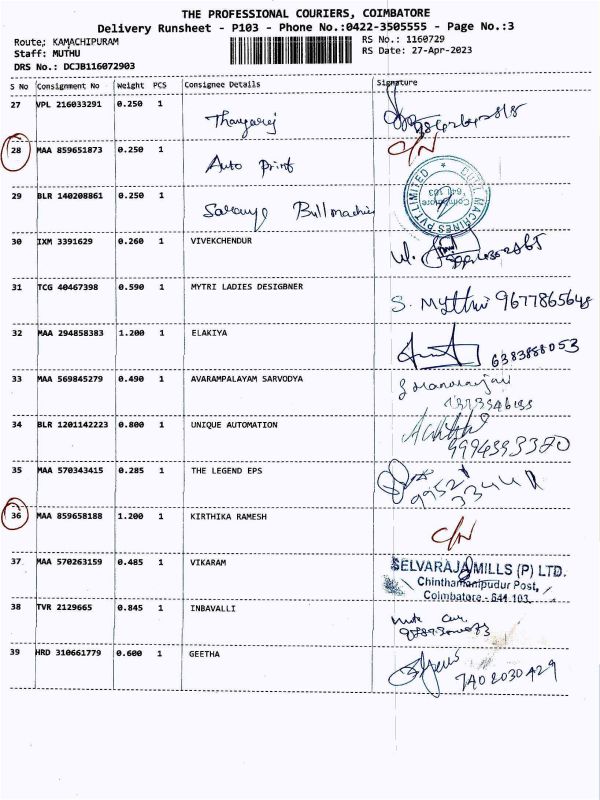 THE PROFESSIONAL COURIERS, COIMBATORE
Delivery Runsheet - P103 - Phone No.:0422-3505555 - Page No.:3
Route; KAMACHIPURAM RS No.: 1160729
Staff: MUTHU RS Date: 27-Apr-2023
DRS No.: DCJB116072903
S No Consignment No Weight PCS Consignee Details Signature
27 VPL 216033291 0.250 1
Thangaraj
28 MAA 859651873 0.250 1 C/N
Auto Print
29 BLR 140208861 0.250 1
Saranya Bull machine
BULL MACHINES PVT LIMITED
Coimbatore
641 103
30 IXM 3391629 0.260 1 VIVEKCHENDUR
31 TCG 40467398 0.590 1 MYTRI LADIES DESIGBNER
S. Mythri 9677865648
32 MAA 294858383 1.200 1 ELAKIYA
6383888053
33 MAA 569845279 0.490 1 AVARAMPALAYAM SARVODYA
34 BLR 1201142223 0.800 1 UNIQUE AUTOMATION
9994393320
35 MAA 570343415 0.285 1 THE LEGEND EPS
36 MAA 859658188 1.200 1 KIRTHIKA RAMESH
C/N
37 MAA 570263159 0.485 1 VIKARAM
SELVARAJA MILLS (P) LTD.
Chinthamanipudur Post,
Coimbatore - 641 103.
38 TVR 2129665 0.845 1 INBAVALLI
39 HRD 310661779 0.600 1 GEETHA